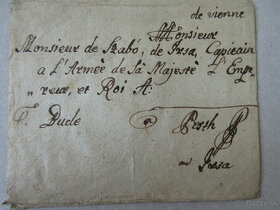 de vienne
Monsieur
Monsieur de Szabó, de Irsa, Capitain
a L'Armée de Sà Majesté L'Empe
„ reur, et Roi A:
Dude
a Pesth
ou Irsa